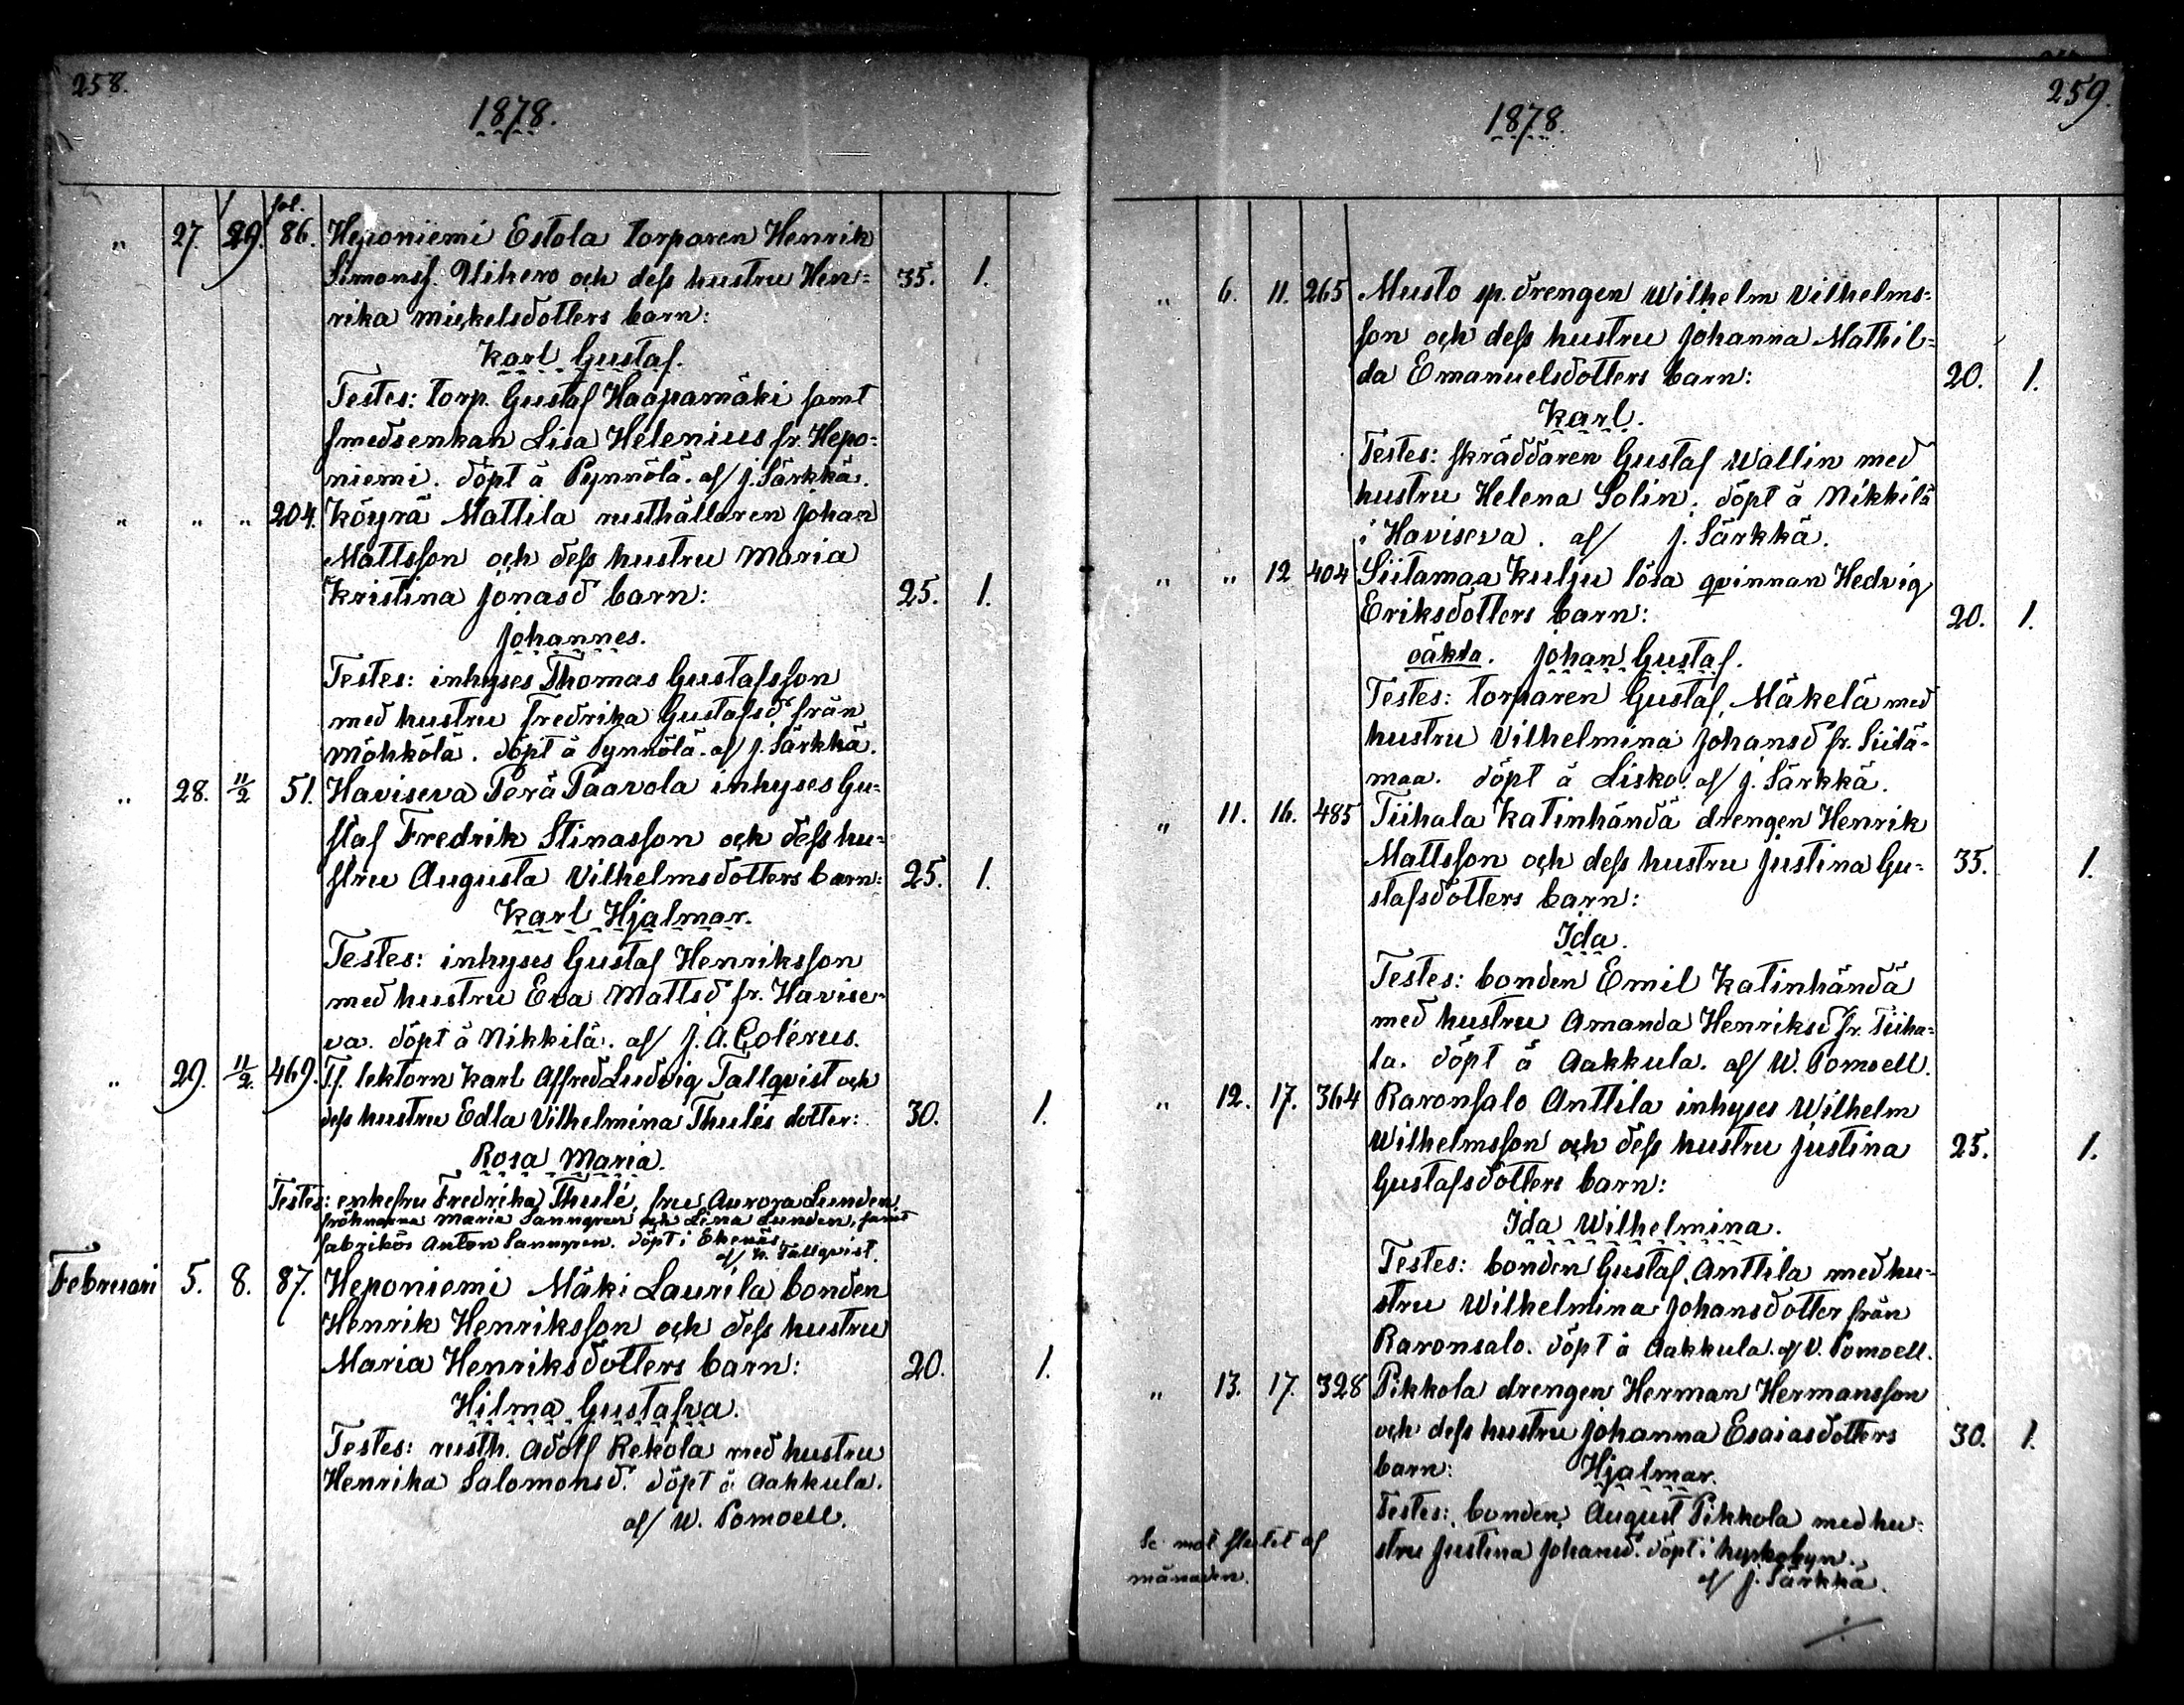 258.
1878.
fol.
" 27. 29. 86. Heponiemi Estola torparen Henrik
Simonsf. Uihero och dess hustru Hen= 35. 1.
rika Mickelsdotters barn:
Karl Gustaf.
Testes: torp. Gustaf Haapamäki samt
smedsenkan Lisa Helenius fr. Hepo=
niemi. döpt å Pynnölä. af/ J. Särkkä.
" " " 204. Köyrä Mattila rusthållaren Johan
Mattsson och dess hustru Maria
Kristina Jonasd barn: 25. 1.
Johannes.
Testes: inhyses Thomas Gustafsson
med hustru Fredrika Gustafsd från
Möhkölä. döpt å Pynnölä. af/ J. Särkkä.
" 28. 11/2 51. Haviseva Perä Paavola inhyses Gu=
staf Fredrik Stinasson och dess hu=
stru Augusta Vilhelmsdotters barn: 25. 1.
Karl Hjalmar.
Testes: inhyses Gustaf Henriksson
med hustru Eva Mattsd fr. Havise-
va. döpt å Nikkilä. af/ J. A. Colérus.
" 29. 11/2. 469. Tf. lektorn Karl Alfred Ludvig Tallqvist och
dess hustru Edla Vilhelmina Thulés dotter: 30. 1.
Rosa Maria.
Testes: enkefru Fredrika Thulé, fru Aurora Lunden,
fröknarna Maria Sanngren och Lina Lunden, samt
fabrikör Anton Sanngren. döpt i Ekenäs
af/ Tallqvist.
Februari 5. 8. 87. Heponiemi Mäki Laurila bonden
Henrik Henriksson och dess hustru
Maria Henriksdotters barn: 20. 1.
Hilma Gustafva.
Testes: rusth. Adolf Rekola med hustru
Henrika Salomonsd. döpt å Aakkula.
af/ W. Pomoell.
259.
1878.
" 6. 11. 265 Musto sp. drengen Wilhelm Vilhelms=
son och dess hustru Johanna Mathil=
da Emanuelsdotters barn: 20. 1.
Karl.
Testes: skräddaren Gustaf Wallin med
hustru Helena Solin. döpt å Nikkilä
i Haviseva. af/ J. Särkkä.
" " 12 404 Siitamaa Kulju lösa qvinnan Hedvig
Eriksdotters barn: 20. 1.
oäkta. Johan Gustaf.
Testes: torparen Gustaf Mäkelä med
hustru Vilhelmina Johansd fr. Siita-
maa. döpt å Lisko. af/ J. Särkkä.
" 11. 16. 485 Tiihala Katinhändä drengen Henrik
Mattsson och dess hustru Justina Gu= 35. 1.
stafsdotters barn:
Ida.
Testes: bonden Emil Katinhändä
med hustru Amanda Henriksd fr. Tiiha=
la. döpt å Aakkula. af/ W. Pomoell.
" 12. 17. 364 Raronsalo Anttila inhyses Wilhelm
Wilhelmsson och dess hustru Justina 25. 1.
Gustafsdotters barn:
Ida Wilhelmina.
Testes: bonden Gustaf Anttila med hu-
stru Wilhelmina Johansdotter från
Raronsalo. döpt å Aakkula. af/ V. Pomoell.
" 13. 17. 328 Pikkola drengen Herman Hermansson
och dess hustru Johanna Esaiasdotters 30. 1.
barn: Hjalmar.
Testes: bonden August Pikkola med hu-
stru Justina Johansd. döpt i kyrkobyn.
af/ J. Särkkä.
Se mot slutet af
månaden.